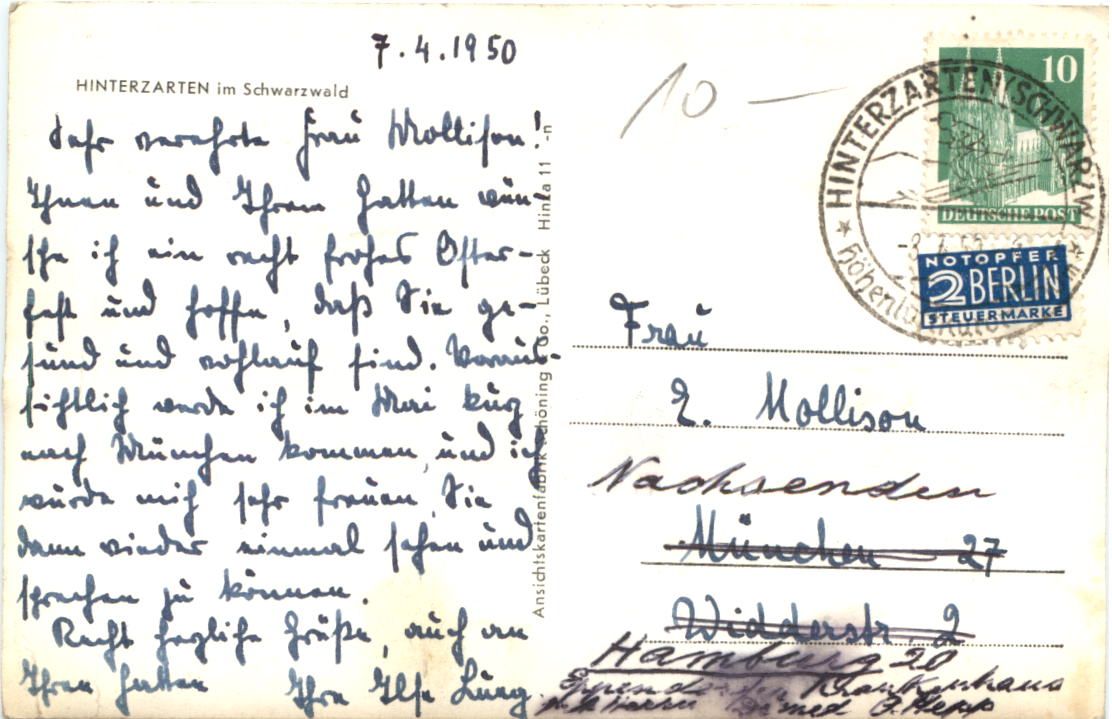 7.4.1950
HINTERZARTEN im Schwarzwald
Sehr verehrte Frau Mollison!
Ihnen und Ihrem Gatten wün-
sche ich ein recht frohes Oster-
fest und hoffe, daß Sie ge-
sund und wohlauf sind. Voraus-
sichtlich werde ich im Mai kurz
nach München kommen, und ich
würde mich sehr freuen, Sie
dann wieder einmal sehen und
sprechen zu können.
Recht herzliche Grüße, auch an
Ihren Gatten Ihre Ilse
Ansichtskartenfabrik Schöning Co., Lübeck Hinza 11 -n
10 –
10
DEUTSCHE POST
HINTERZARTEN (SCHWARZW)
NOTOPFER
2 BERLIN
STEUERMARKE
Frau
E. Mollison
Nachsenden
München 27
Widderstr. 2
Hamburg 20
Krankenhaus
med